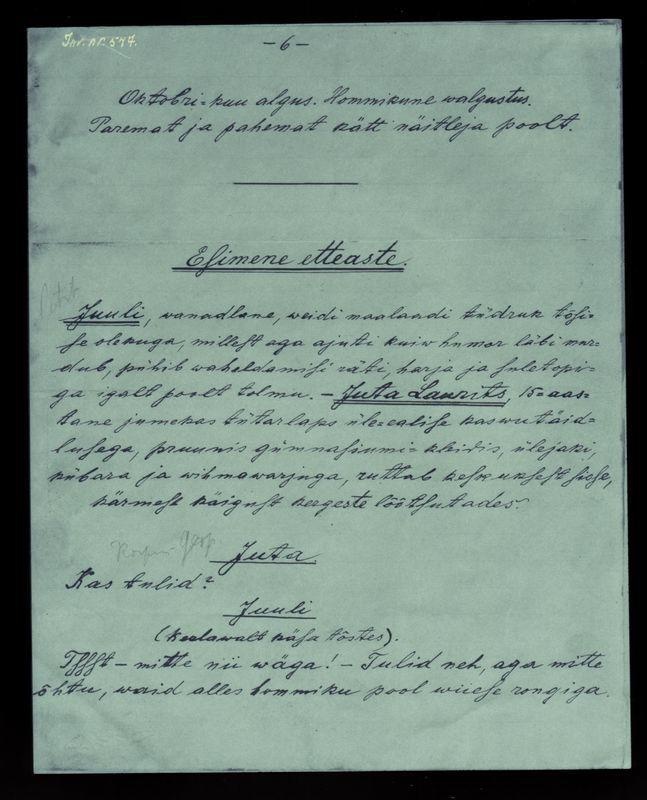 Inv. nr. 577.
— 6 —
Oktobri-kuu algus. Hommikune walgustus.
Paremat ja pahemat kätt näitleja poolt.
Esimene etteaste.
Juuli, wanadlane, weidi maalaadi tüdruk tõsi-
se olekuga, millest aga ajuti kuiw humor läbi mur-
dub, pühib waheldamisi räti, harja ja suletopi-
ga igalt poolt tolmu. — Juta Laurits, 15-aas-
tane jumekas tütarlaps üle-ealise kaswu täid-
lusega, pruunis gümnasiumi-kleidis, ülejaki,
kübara ja wihmawarjuga, ruttab kesk uksest sisse,
kärmest käigust kergeste lõõtsutades.
Juta.
Kas tulid?
Juuli
(keelawalt käsa tõstes).
Tssst — mitte nii wäga! — Tulid neh, aga mitte
õhtu, waid alles hommiku pool wiiese rongiga.